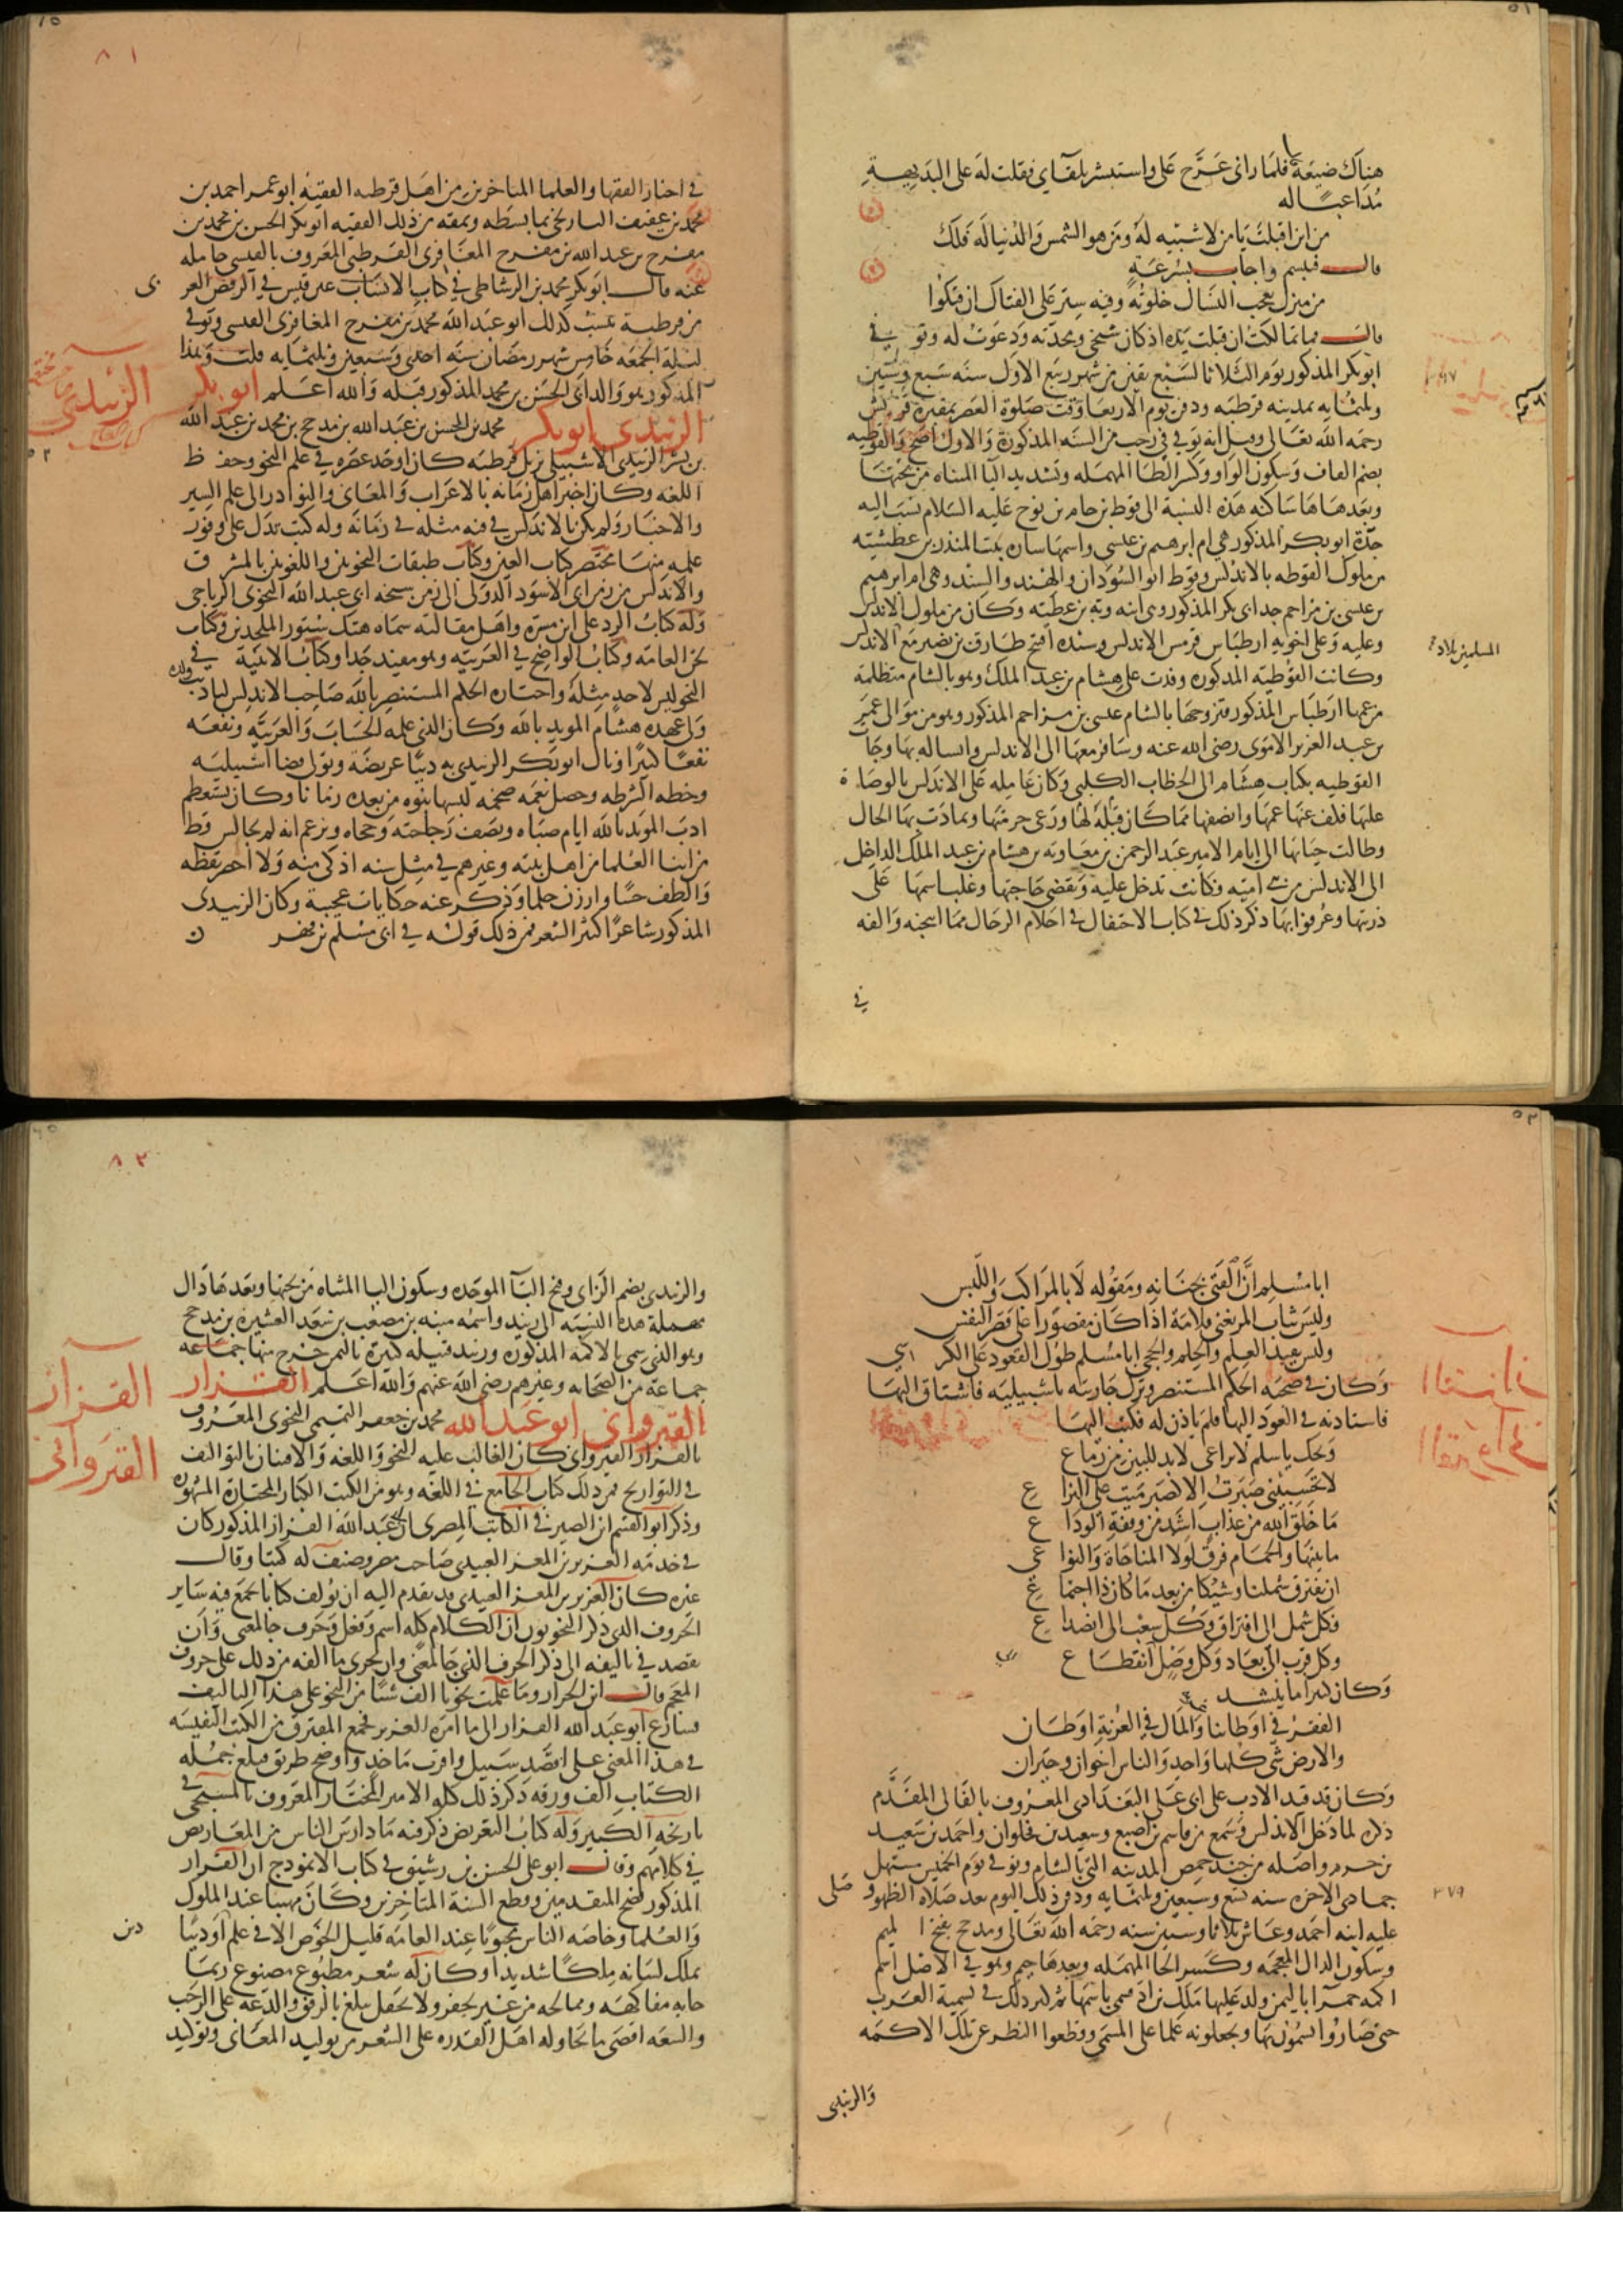 هناك ضيعة فلما رانى عرج على واستبشر بلقآى فقلت له على البديهة
مداعبا له
من اين اقبلت يا من لا شبيه له ومن هو الشمس والدنيا له فلك
قال فتبسم واجاب بسرعة
من منزل يعجب النساك خلوته وفيه ستر على الفتاك ان فتكوا
قال فما تمالكت ان قبلت يده اذ كان شيخى ومجدته ودعوت له وتوفى
ابو بكر المذكور يوم الثلاثا لسبع بقين من شهر ربيع الاول سنه سبع وستين
وثلثمايه بمدينه قرطبه ودفن يوم الاربعا وقت صلوة العصر بمقبرة قريش
رحمه الله تعالى وقيل انه توفى فى رجب من السنه المذكورة والاول اصح والقوطيه
بضم القاف وسكون الواو وكسر الطا المهمله وتشديد اليا المثناه من تحتها
وبعدها ها ساكنه هذه النسبة الى قوط بن حام بن نوح عليه السلام نسب اليه
جدة ابو بكر المذكور هى ام ابرهيم بن عيسى واسمها ساره بنت المنذر بن غطشيته
من ملوك القوطه بالاندلس وقوط ابو السودان والهند والسند وهى ام ابرهيم
بن عيسى بن مزاحم جد ابى بكر المذكور
وعليه وعلى اخويه ارطباس قومس الاندلس وسنده افتتح طارق بن نصير مع الاندلس
المسلمين بلاد
وكانت القوطية المذكوره وفدت على هشام بن عبد الملك وهو بالشام متظلمة
من عمها ارطباس المذكور فتزوجها بالشام عيسى بن مزاحم المذكور وهو من موالى عمر
بن عبد العزيز الاموى رضى الله عنه وسافر معها الى الاندلس وانساله بها وجات
القوطيه بكتاب هشام الى الخطاب الكلبى وكان عامله على الاندلس بالوصاة
عليها فكف عنها عمها وانصفها مما كان قبله لها ورعى حرمتها وتمادت بها الحال
وطالت حياتها الى ايام الامير عبد الرحمن بن معاويه بن هشام بن عبد الملك الداخل
الى الاندلس من بنى اميه فكانت تدخل عليه وتقضى حاجتها وغلب اسمها على
ذريتها وعرفوا بها ذكر ذلك فى كتاب الاحتفال فى اعلام الرجال مما انتخبه والفه
فى
فى اخبار الفقها والعلما المتاخرين من اهل قرطبه الفقيه ابو عمر احمد بن
محمد بن عفيف التاريخى مما بسطه ونمقه من ذلك الفقيه ابو بكر الحسن بن محمد بن
مفرح بن عبد الله بن مفرح المعافرى القرطبى المعروف بالقبسى حامله
عنه قال ابو بكر محمد بن الرشاطى فى كتاب الانساب عين قبس فى الربض الغربى
من قرطبة نسب كذلك ابو عبد الله محمد بن مفرح المغافرى القبسى وتوفى
ليلة الجمعه خامس شهر رمضان سنه احدى وسبعين وثلثمايه قلت وهذا
المذكور هو والد ابى الحسن بن محمد المذكور قبله والله اعلم ابو بكر
الزبيدى ابو بكر محمد بن الحسن بن عبد الله بن مذحج بن محمد بن عبد الله
بن بشر الزبيدى الاشبيلى نزيل قرطبه كان اوحد عصره فى علم النحو وحفظ
اللغه وكان اخبر اهل زمانه بالاعراب والمعانى والنوادر الى علم السير
والاخبار ولم يكن بالاندلس فى فنه مثله فى زمانه وله كتب تدل على وفور
علمه منها مختصر كتاب العين وكتاب طبقات النحويين واللغويين بالمشرق
والاندلس من زمن ابى الاسود الدولى الى زمن شيخه ابى عبد الله النحوى الرباحى
وله كتاب الرد على ابن مسرة واهل مقالته سماه هتك ستور الملحدين وكتاب
لحن العامه وكتاب الواضح فى العربيه وهو مفيد جدا وكتاب الابنية فى
النحو ليس لاحد مثله واختاره الحكم المستنصر بالله صاحب الاندلس لتاديب ولده
ولى عهده هشام المويد بالله وكان الذى علمه الحساب والعربيه ونفعه
نفعا كثيرا ونال ابو بكر الزبيدى به دنيا عريضة وتولى قضا اشبيليه
وخطه الشرطه وحصل نعمه ضخمه لبسها بنوه من بعده زمانا وكان يستعظم
ادب المويد بالله ايام صباه ويصف رجاحته وحجاه ويزعم انه لم يجالس قط
من ابنا العلما من اهل بيته وغيرهم فى مثل سنه اذكى منه ولا احضر يقظه
والطف حسا وارزن حلما وذكر عنه حكايات عجيبة وكان الزبيدى
المذكور شاعرا كثير الشعر فمن ذلك قوله فى ابى مسلم بن فهر
الزبيدى
ابا مسلم ان الفتى بجنانه ومقوله لا بالمراكب واللبس
وليس ثياب المرء تغنى قلامة اذا كان مقصورا على قصر النفس
وليس يفيد العلم والحلم والحجى ابا مسلم طول القعود على الكراسى
وكان فى صحبة الحكم المستنصر وترك جاريته باشبيليه فاشتاق اليها
فاستاذنه فى العود اليها فلم ياذن له فكتب اليها
ويحك يا سلم لا تراعى لا بد للبين من زماع
لا تحسبينى صبرت الا كصبر ميت على النزاع
ما خلق الله من عذاب اشد من وقفة الوداع
ما بينها والحمام فرق لولا المناحاة والنواعى
ان يفترق شملنا وشيكا من بعد ما كان ذا اجتماع
فكل شمل الى افتراق وكل شعب الى انصداع
وكل قرب الى بعاد وكل وصل الى انقطاع
وكان كثيرا ما ينشد
الفقر فى اوطاننا غربة والمال فى الغربة اوطان
والارض شى كلها واحد والناس اخوان وجيران
وكان قد قيد الادب على ابى على البغدادى المعروف بالقالى المقدم
ذكره لما دخل الاندلس وسمع من قاسم بن اصبغ وسعيد بن فحلون واحمد بن سعيد
بن حزم واصله من جند حمص المدينه التى بالشام وتوفى يوم الخميس مستهل
جمادى الاخره سنه تسع وسبعين وثلثمايه ودفن ذلك اليوم بعد صلاه الظهر وصلى
٣٧٩
عليه ابنه احمد وعاش ثلاثا وستين سنه رحمه الله تعالى ومذحج بفتح الميم
وسكون الذال المعجمه وكسر الحا المهمله وبعدها جيم وهو فى الاصل اسم
اكمه حمرآ باليمن ولد عليها مالك بن ادد فسمى باسمها ثم كثر ذلك فى تسمية العرب
حتى صاروا يسمون بها ويجعلونه علما على المسمى وقطعوا النظر عن تلك الاكمه
والزبيدى
٨٢
والزبيدى بضم الزاى وفتح البآ الموحده وسكون اليا المثناه من تحتها وبعدها دال
مهملة هذه النسبه الى زبيد واسمه منبه بن مصعب بن سعد العشيره بن مذحج
وهو الذى سمى بالاكمه المذكوره وزبيد قبيله كبيرة باليمن خرج منها جماعه
جماعة من الصحابه وغيرهم رضى الله عنهم والله اعلم القزاز
القيروانى ابو عبد الله محمد بن جعفر التميمى النحوى المعروف
بالقزاز القيروانى كان الغالب عليه النحو واللغه والافتنان بالتواليف
فى التواريخ فمن ذلك كتاب الجامع فى اللغه وهو من الكتب الكبار المختارة المشهوره
وذكر ابو القسم ابن الصيرفى الكاتب المصرى ان عبد الله القزاز المذكور كان
فى خدمه العزيز بن المعز العبيدى صاحب مصر وصنف له كتبا وقال
غيره كان العزيز بن المعز العبيدى قد تقدم اليه ان يولف كتابا يجمع فيه ساير
الحروف الذى ذكر النحويون ان الكلام كله اسم وفعل وحرف جا لمعنى وان
يقصد فى تاليفه الى ذكر الحرف الذى جا لمعنى وان يجرى ما الفه من ذلك على حروف
المعجم قال ابن الجزار وما علمت نحويا الف شيا من النحو على هذا التاليف
فسارع ابو عبد الله القزاز الى ما امره العزيز فجمع المفترق من الكتب النفيسه
فى هذا المعنى على اقصد سبيل واقرب ماخذ واوضح طريق فبلغ جمله
الكتاب الف ورقه ذكر ذلك كله الامير المختار المعروف بالمسبحى فى
تاريخه الكبير وله كتاب التعريض ذكر فيه ما دار بين الناس من المعاريض
فى كلامهم وقال ابو على الحسن بن رشيق فى كتاب الانموذج ان القزاز
المذكور فضح المتقدمين وقطع السنة المتاخرين وكان مهيبا عند الملوك
والعلما وخاصه الناس محبوبا عند العامه قليل الخوض الا فى علم او دنيا
دين
يملك لسانه ملكا شديدا وكان له شعر مطبوع مصنوع ربما
جا به مفاكهه وممالحه من غير تحفز ولا تحفل يبلغ بالرفق والدعة على الرحب
والسعه اقصى ما يحاوله اهل القدره على الشعر من توليد المعانى وتوكيد
القزاز
القيروانى